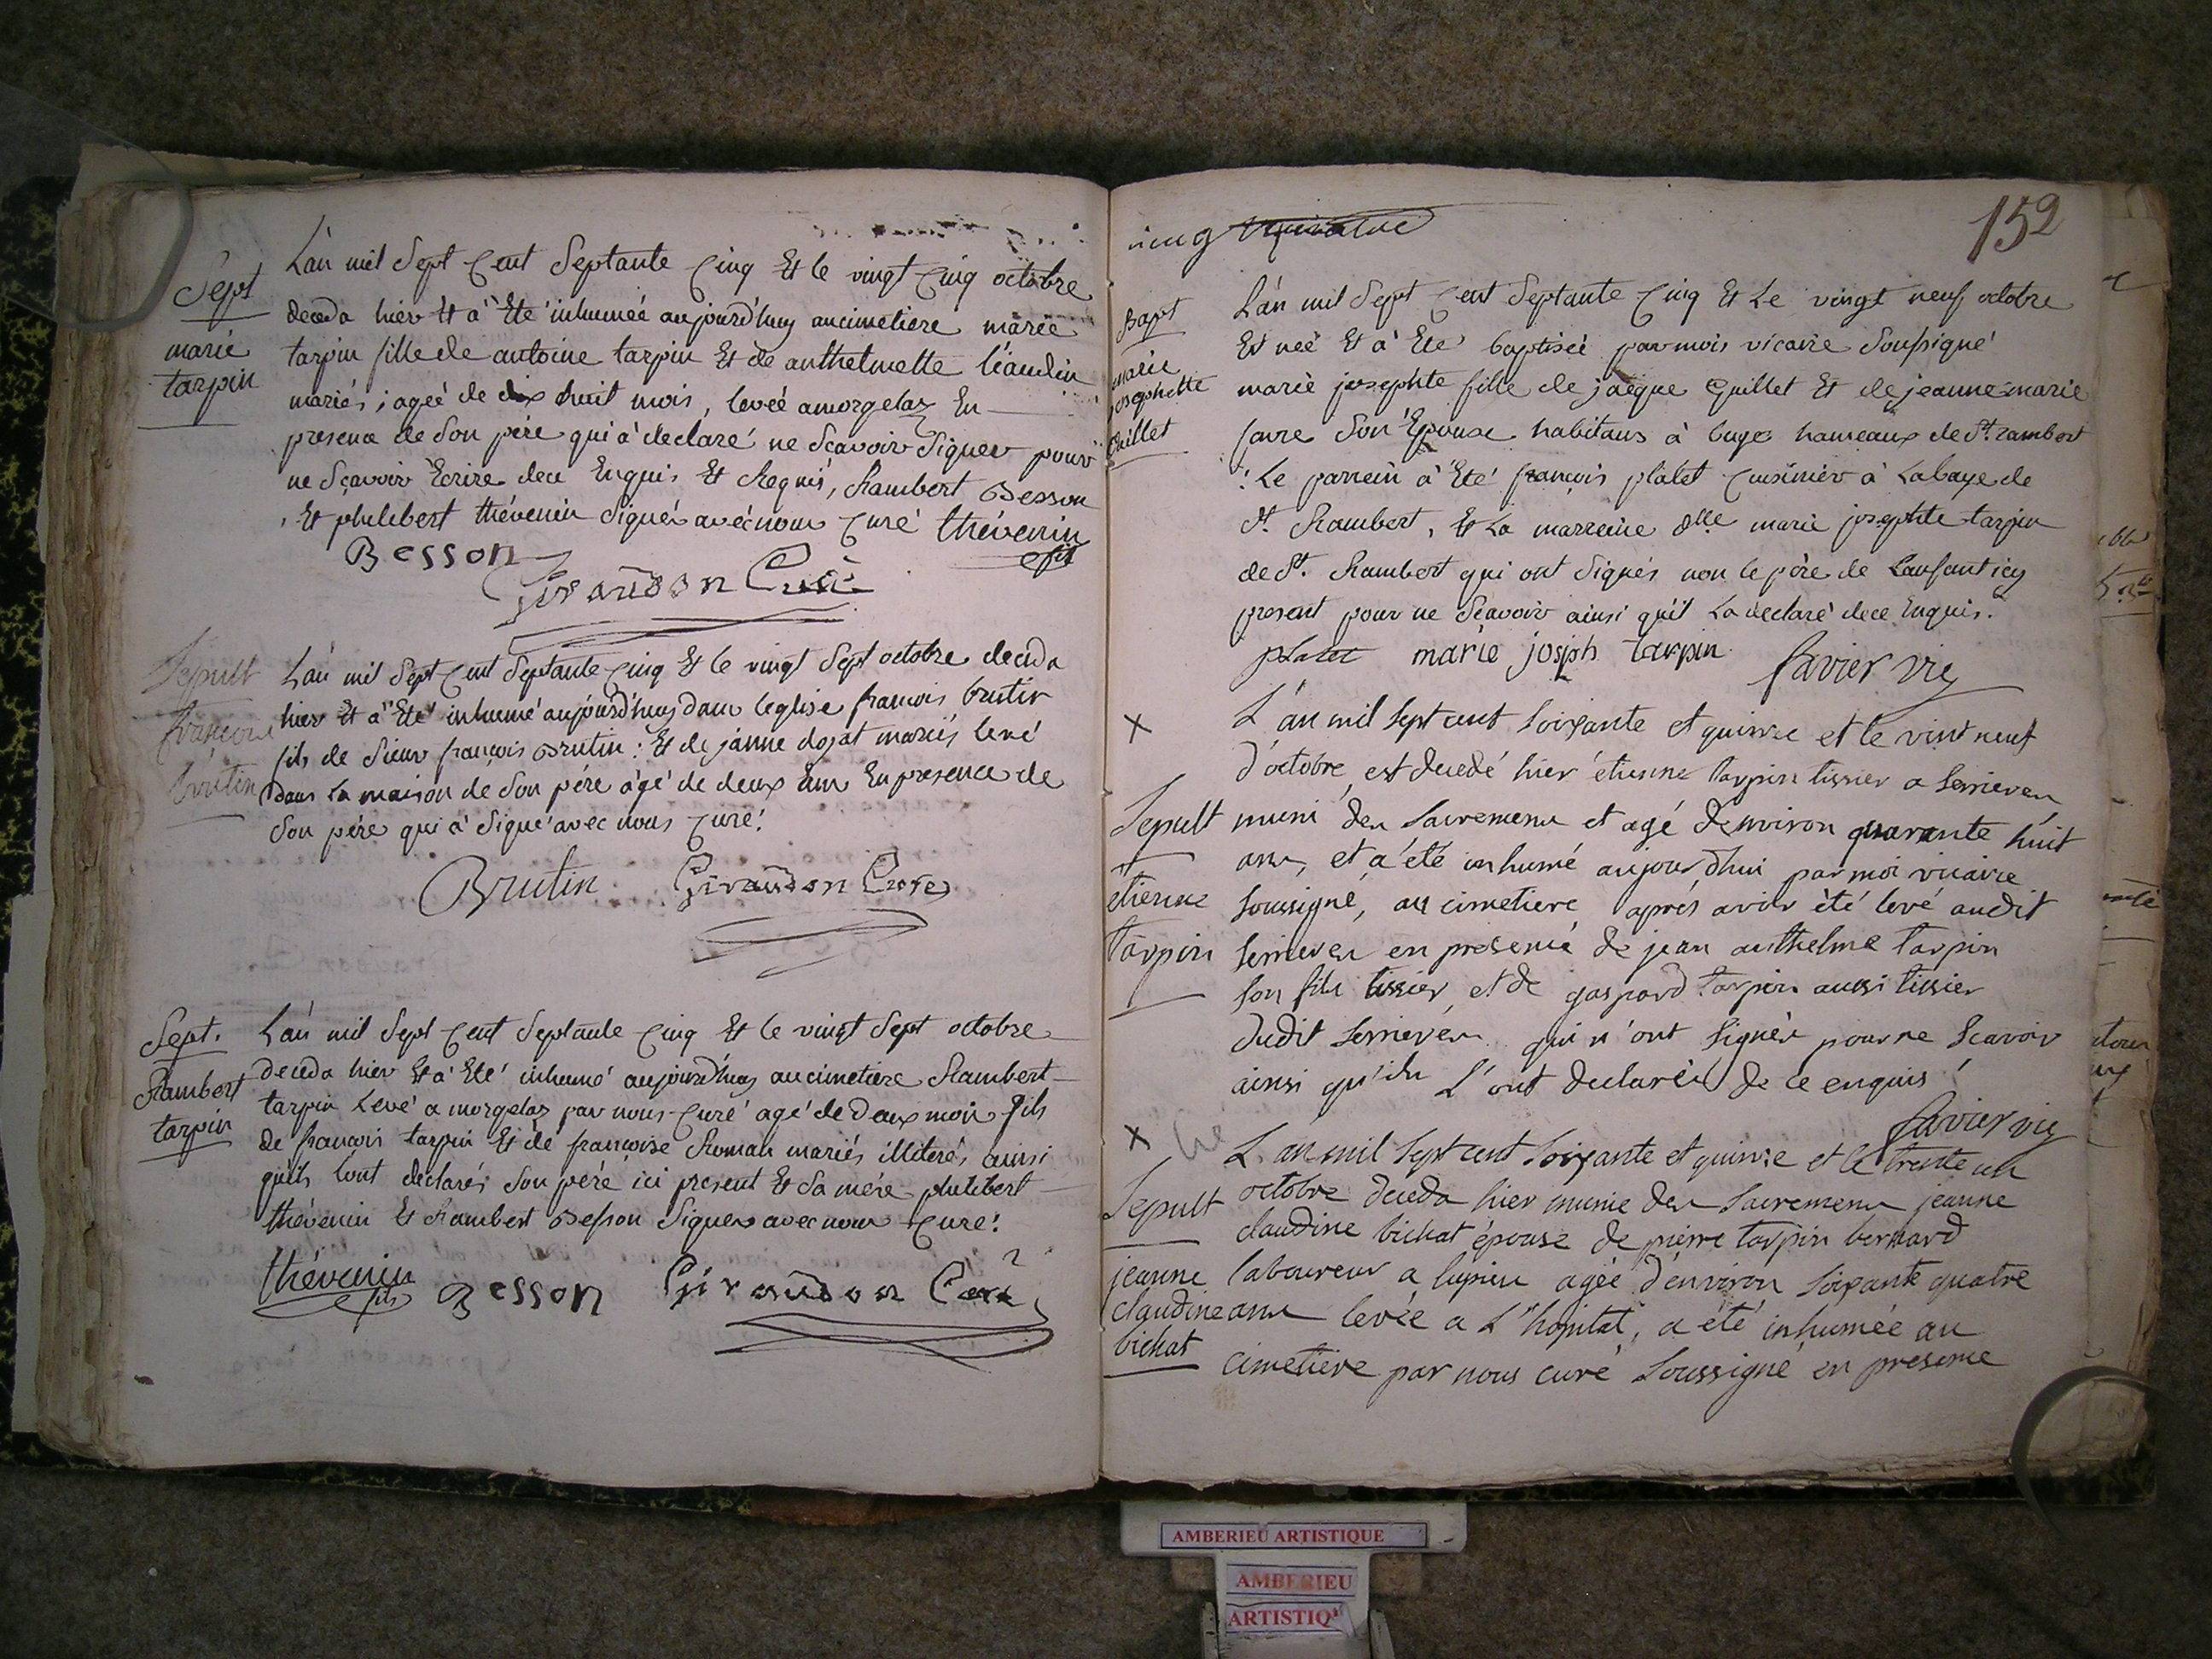 L'an mil Sept Cent Septante Cinq Et le vingt Cinq octobre
Sept
deceda hier Et à Eté inhumée aujourd'huy au cimetiere marie
marie
tarpin fille de antoine tarpin Et de anthelmette
tarpin
mariés, agée de dix huit mois, levée a morgelaz En
presence de Son pere qui à declaré ne Scavoir Signer pour
ne Sçavoir Ecrire dece Enquis Et Requis, Rambert Besson
Et philibert thévenin Signés avec nous Curé thévenin
Besson fils
Girandon Curé
Sepult
L'an mil Sept Cent Septante Cinq Et le vingt Sept octobre deceda
françois
hier Et à Eté inhumé aujourd'huy dans l'eglise francois brutin
fils de Sieur françois Brutin : Et de janne dojat mariés levé
brutin
dans La maison de Son pére âgé de deux ans En presence de
Son pére qui à Signé avec nous Curé.
Brutin Girandon Curé
Sept.
L'an mil Sept Cent Septante Cinq Et le vingt Sept octobre
Rambert
deceda hier Et à Eté inhumé aujourd'huy au cimetiere Rambert
tarpin
tarpin Levé a morgelaz par nous Curé agé de Deux mois fils
de francois tarpin Et de françoise Roman mariés illiterés ainsi
qu'ils L'ont declarés Son péré ici present Et Sa mére philibert
thévenin Et Rambert Besson Signés avec nous Curé.
thévenin fils Besson Girandon Curé
152
cinq
Bapt
L'an mil Sept Cent Septante Cinq Et Le vingt neuf octobre
Et neé Et à Eté baptisée par mois vicaire Soussigné
marie
josephette
marie josephte fille de jacque Guillet Et de jeanne marie
Guillet
favre Son Epouse habitans à buges hameaux de St. rambert
: Le parrein à Eté françois platet Cuisinier à Labaye de
St. Rambert, Et La marreine dlle marie josephte tarpin
de St. Rambert qui ont Signés non le pére de Lanfant icy
present pour ne Scavoir ainsi quil La declaré dece Enquis.
platet marie josph tarpin favier vic
X
L'an mil Sept cent Soixante et quinze et le vint neuf
d'octobre, est decedé hier étienne tarpin tissier a Serrieres
Sepult
muni des Sacremens et agé denviron quarante huit
ans, et a été inhumé aujourd'hui par moi vicaire
étienne
soussigné, au cimetiere aprés avoir été levé audit
tarpin
Serrieres en presence de jean anthelme tarpin
son fils tissier et de gaspard tarpin aussi tissier
dudit Serrieres qui n'ont signés pour ne scavoir
ainsi qu'ils l'ont declarés de ce enquis.
favier vic
X
L'an mil Sept cent Soixante et quinze et le trente un
Sepult
octobre deceda hier munie des Sacremens jeanne
claudine bichat épouse de pierre tarpin bernard
jeanne
laboureur a lupieu agée d'environ soixante quatre
claudine
ans levée a L'hopital, a été inhumée au
bichat
cimetiere par nous curé Soussigné en presence
AMBERIEU ARTISTIQUE
AMBERIEU
ARTISTIQ